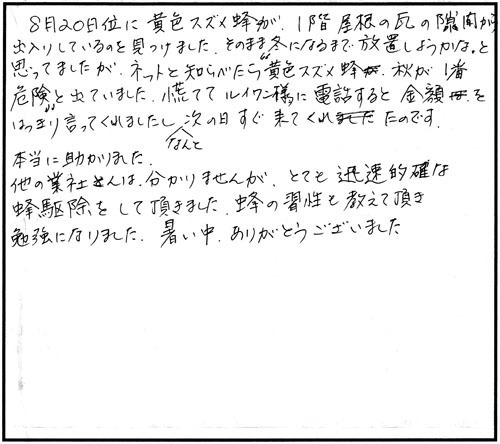 8月20日位に黄色スズメ蜂が、1階屋根の瓦の隙間から
出入りしているのを見つけました。そのまま冬になるまで放置しようかな。と
思ってましたが、ネットと知らべたら“黄色スズメ蜂 秋が1番
危険”と出ていました。慌ててルイワン様に電話すると金額を
はっきり言ってくれましたし なんと 次の日すぐ来てくれたのです。
本当に助かりれた。
他の業社さんは、分かりませんが、とても迅速的確な
蜂駆除をして頂きました。蜂の習性も教えて頂き
勉強になりました。暑い中、ありがとうございました